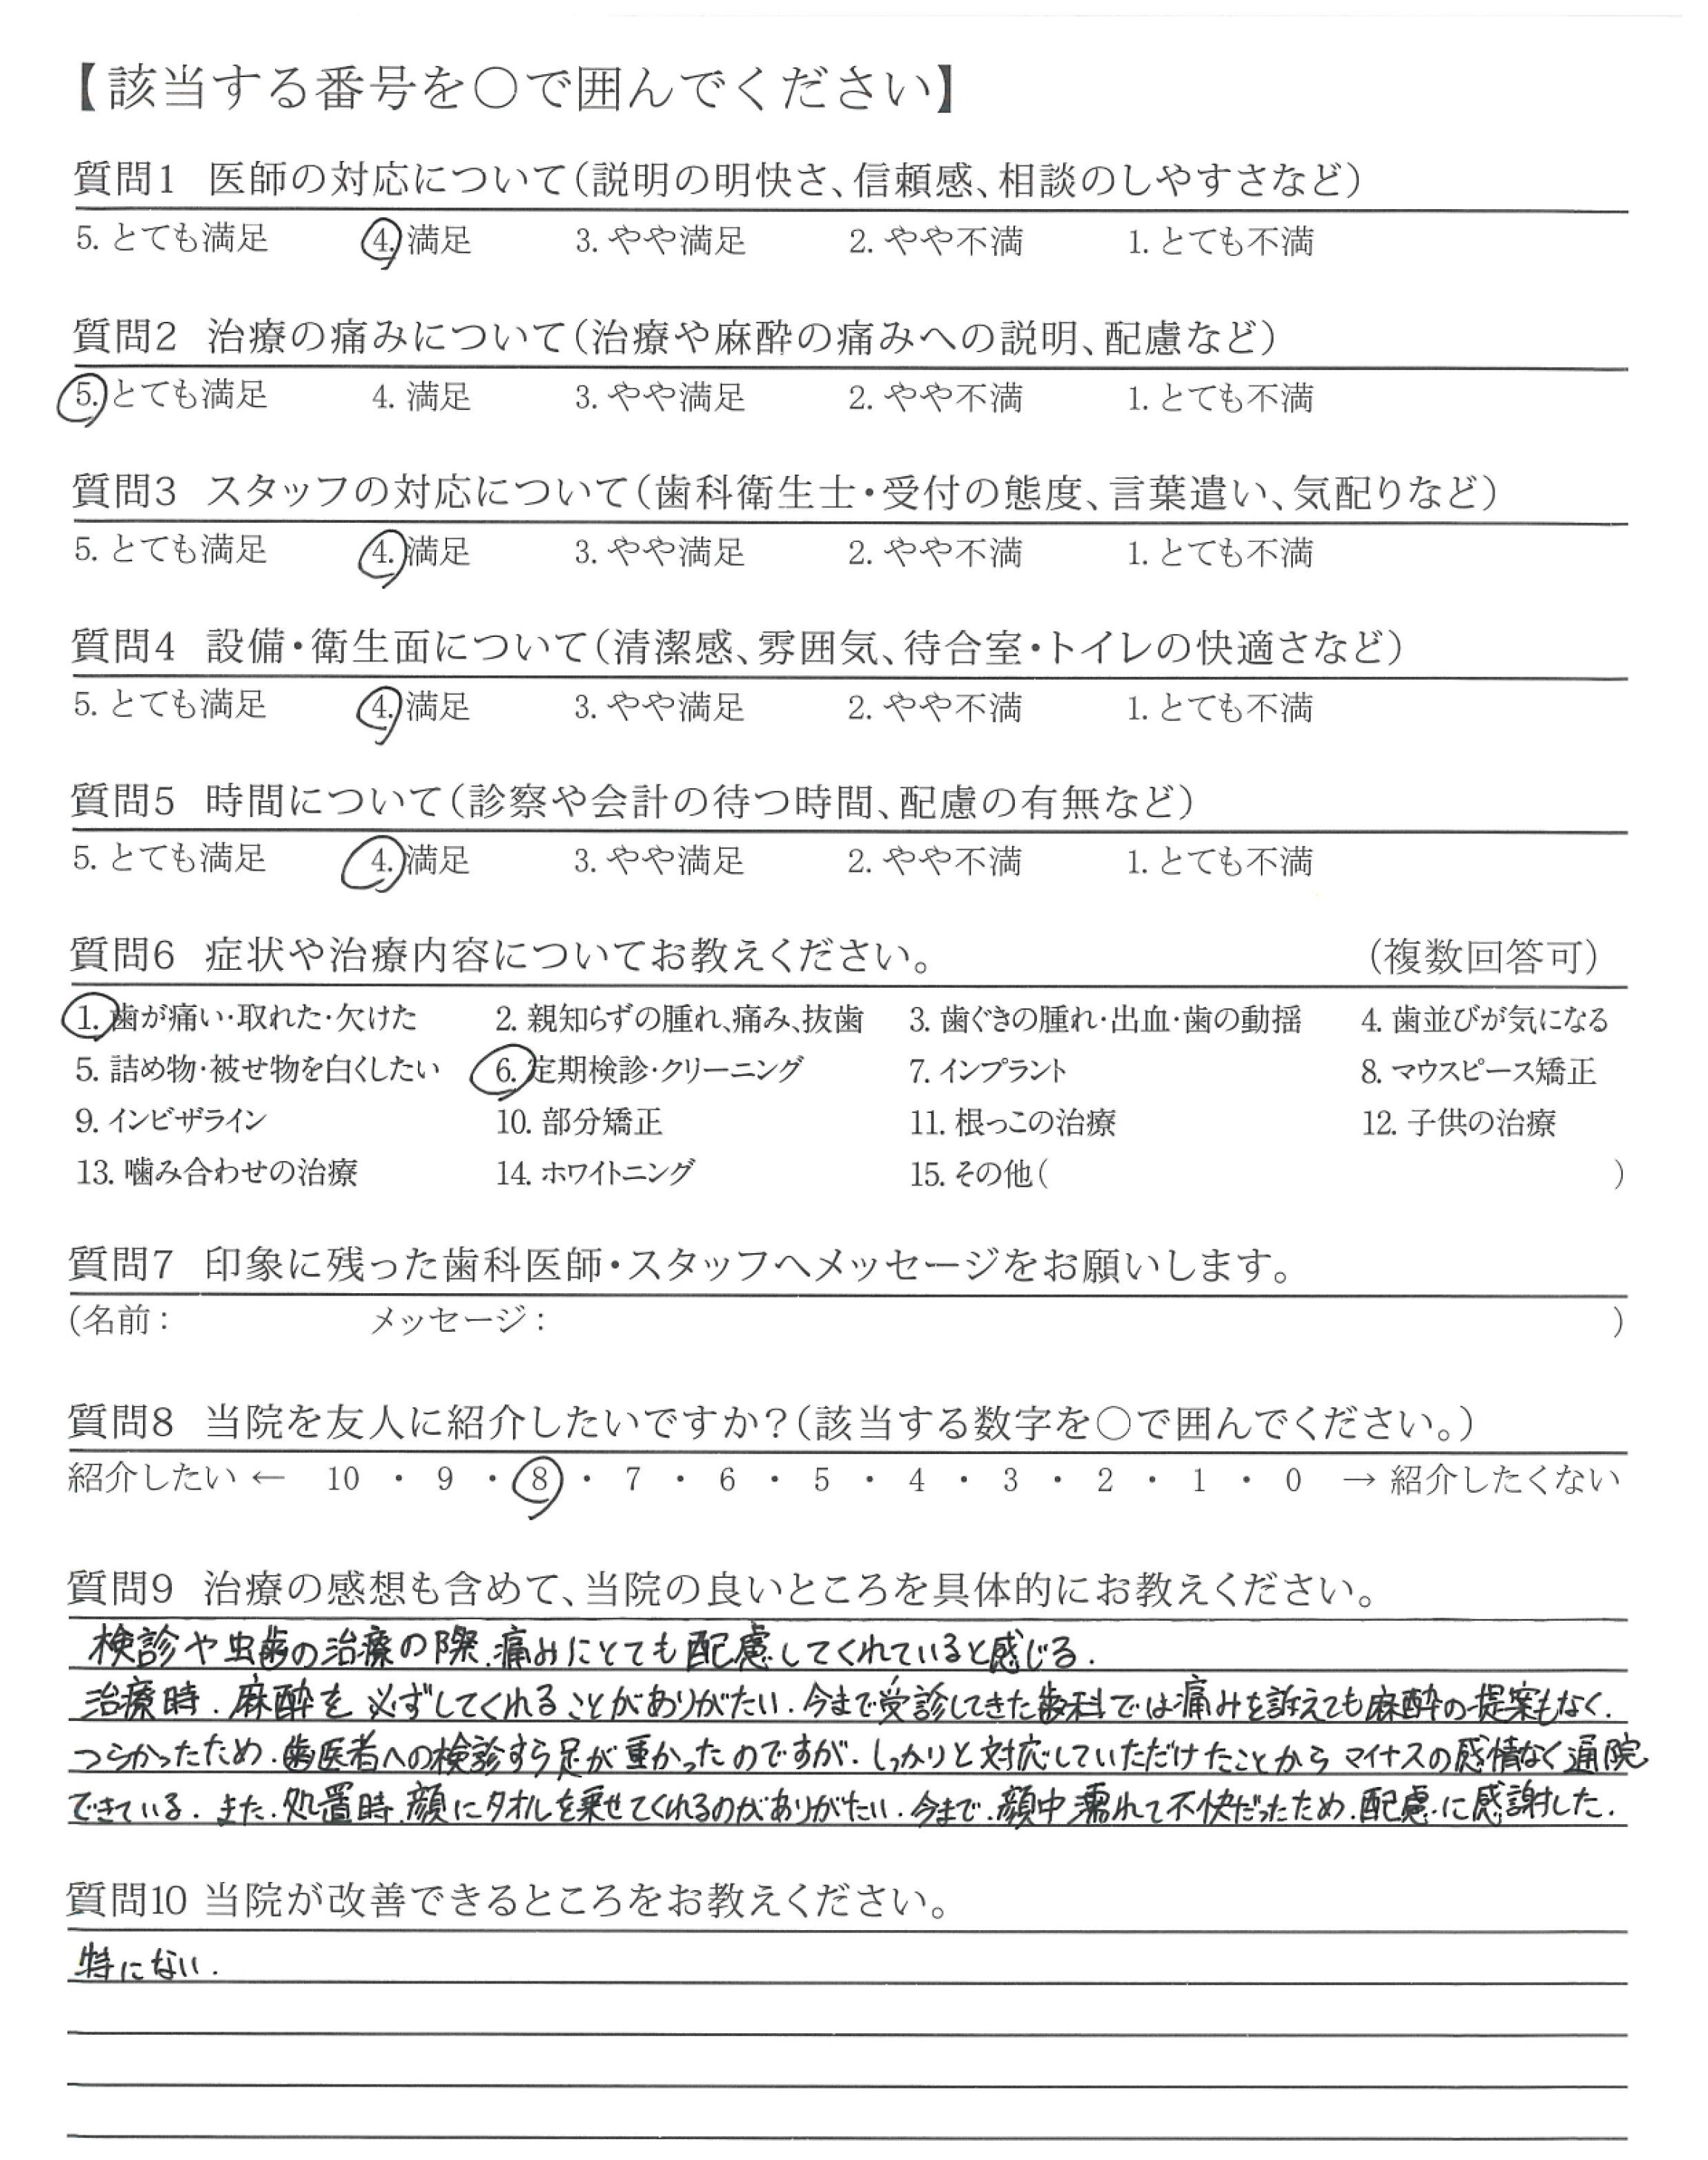 【該当する番号を○で囲んでください】
質問1 医師の対応について(説明の明快さ、信頼感、相談のしやすさなど)
5. とても満足 4. 満足 3. やや満足 2. やや不満 1. とても不満
質問2 治療の痛みについて(治療や麻酔の痛みへの説明、配慮など)
5. とても満足 4. 満足 3. やや満足 2. やや不満 1. とても不満
質問3 スタッフの対応について(歯科衛生士・受付の態度、言葉遣い、気配りなど)
5. とても満足 4. 満足 3. やや満足 2. やや不満 1. とても不満
質問4 設備・衛生面について(清潔感、雰囲気、待合室・トイレの快適さなど)
5. とても満足 4. 満足 3. やや満足 2. やや不満 1. とても不満
質問5 時間について(診察や会計の待つ時間、配慮の有無など)
5. とても満足 4. 満足 3. やや満足 2. やや不満 1. とても不満
質問6 症状や治療内容についてお教えください。 (複数回答可)
1. 歯が痛い・取れた・欠けた 2. 親知らずの腫れ、痛み、抜歯 3. 歯ぐきの腫れ・出血・歯の動揺 4. 歯並びが気になる
5. 詰め物・被せ物を白くしたい 6. 定期検診・クリーニング 7. インプラント 8. マウスピース矯正
9. インビザライン 10. 部分矯正 11. 根っこの治療 12. 子供の治療
13. 噛み合わせの治療 14. ホワイトニング 15. その他( )
質問7 印象に残った歯科医師・スタッフへメッセージをお願いします。
(名前: メッセージ: )
質問8 当院を友人に紹介したいですか?(該当する数字を○で囲んでください。)
紹介したい ← 10 ・ 9 ・ 8 ・ 7 ・ 6 ・ 5 ・ 4 ・ 3 ・ 2 ・ 1 ・ 0 → 紹介したくない
質問9 治療の感想も含めて、当院の良いところを具体的にお教えください。
検診や虫歯の治療の際、痛みにとても配慮してくれていると感じる.
治療時、麻酔を必ずしてくれることがありがたい.今まで受診してきた歯科では痛みを訴えても麻酔の提案もなく、
つらかったため、歯医者への検診すら足が重かったのですが、しっかりと対応していただけたことからマイナスの感情なく通院
できている.また、処置時、顔にタオルを乗せてくれるのがありがたい.今まで、顔中濡れて不快だったため、配慮に感謝した.
質問10 当院が改善できるところをお教えください。
特にない.